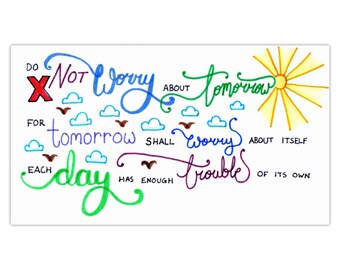 DO NOT Worry ABOUT tomorrow
FOR tomorrow SHALL worry ABOUT ITSELF
EACH day HAS ENOUGH trouble OF ITS OWN